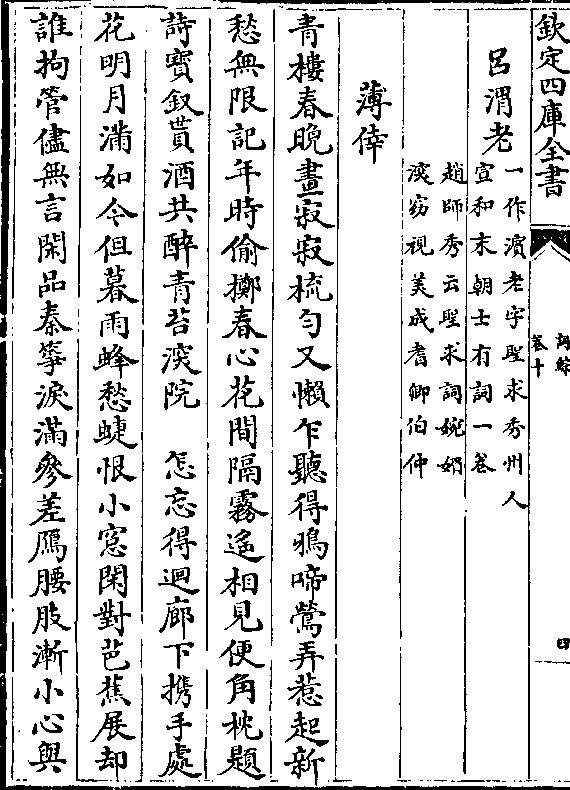 欽定四庫全書
詞綜
卷十
四
呂渭老
一作濱老字聖求秀州人
宣和末朝士有詞一卷
趙師秀云聖求詞婉媚
深窈視美成耆卿伯仲
薄倖
青樓春晚晝寂寂梳匀又懶乍聽得鴉啼鶯弄惹起新
愁無限記年時偷擲春心花間隔霧遙相見便角枕題
詩寶釵貰酒共醉青苔深院　怎忘得迴廊下携手處
花明月滿如今但暮雨蜂愁蜨恨小窓閑對芭蕉展却
誰拘管儘無言閑品秦箏淚滿參差鴈腰肢漸小心與